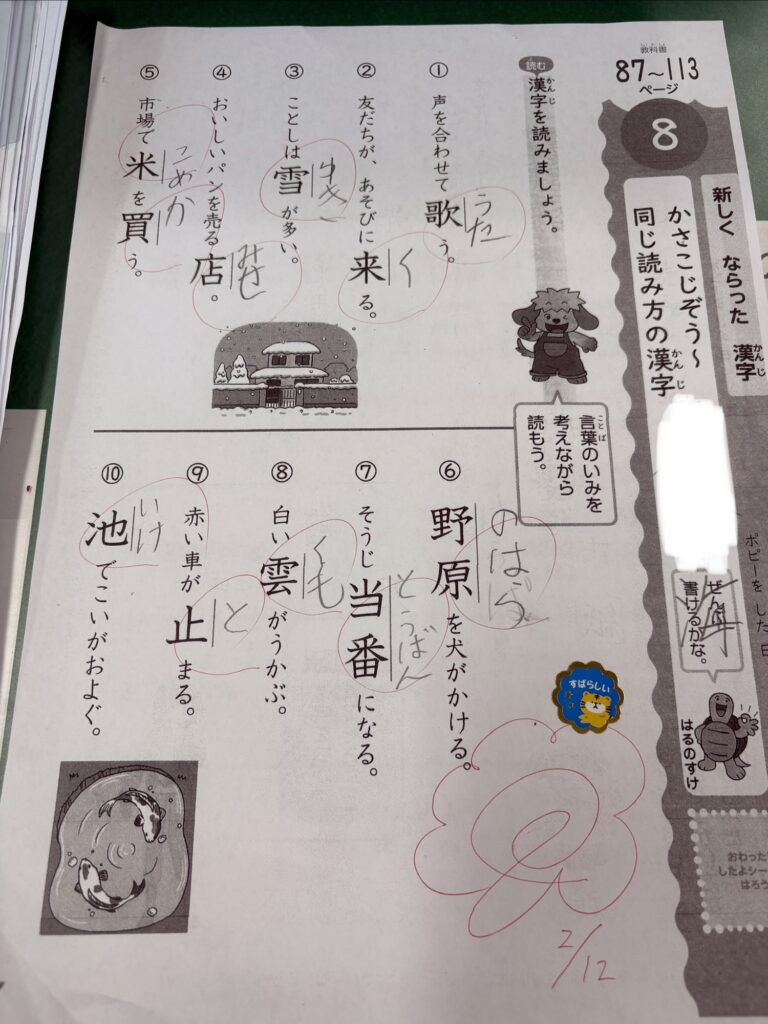 教科書
87～113
ページ
8
新しく ならった 漢字
かんじ
かさこじぞう～
同じ読み方の漢字
かんじ
ぜんぶ
書けるかな。
はるのすけ
ポピーを した 日
おわった
したよシー
はろう
読む
漢字を読みましょう。
かんじ
言葉のいみを
ことば
考えながら
読もう。
① 声を合わせて歌う。
うた
② 友だちが、あそびに来る。
く
③ ことしは雪が多い。
ゆき
④ おいしいパンを売る店。
みせ
⑤ 市場で米を買う。
こめ
か
⑥ 野原を犬がかける。
のはら
⑦ そうじ当番になる。
とうばん
⑧ 白い雲がうかぶ。
くも
⑨ 赤い車が止まる。
と
⑩ 池でこいがおよぐ。
いけ
すばらしい
2/12